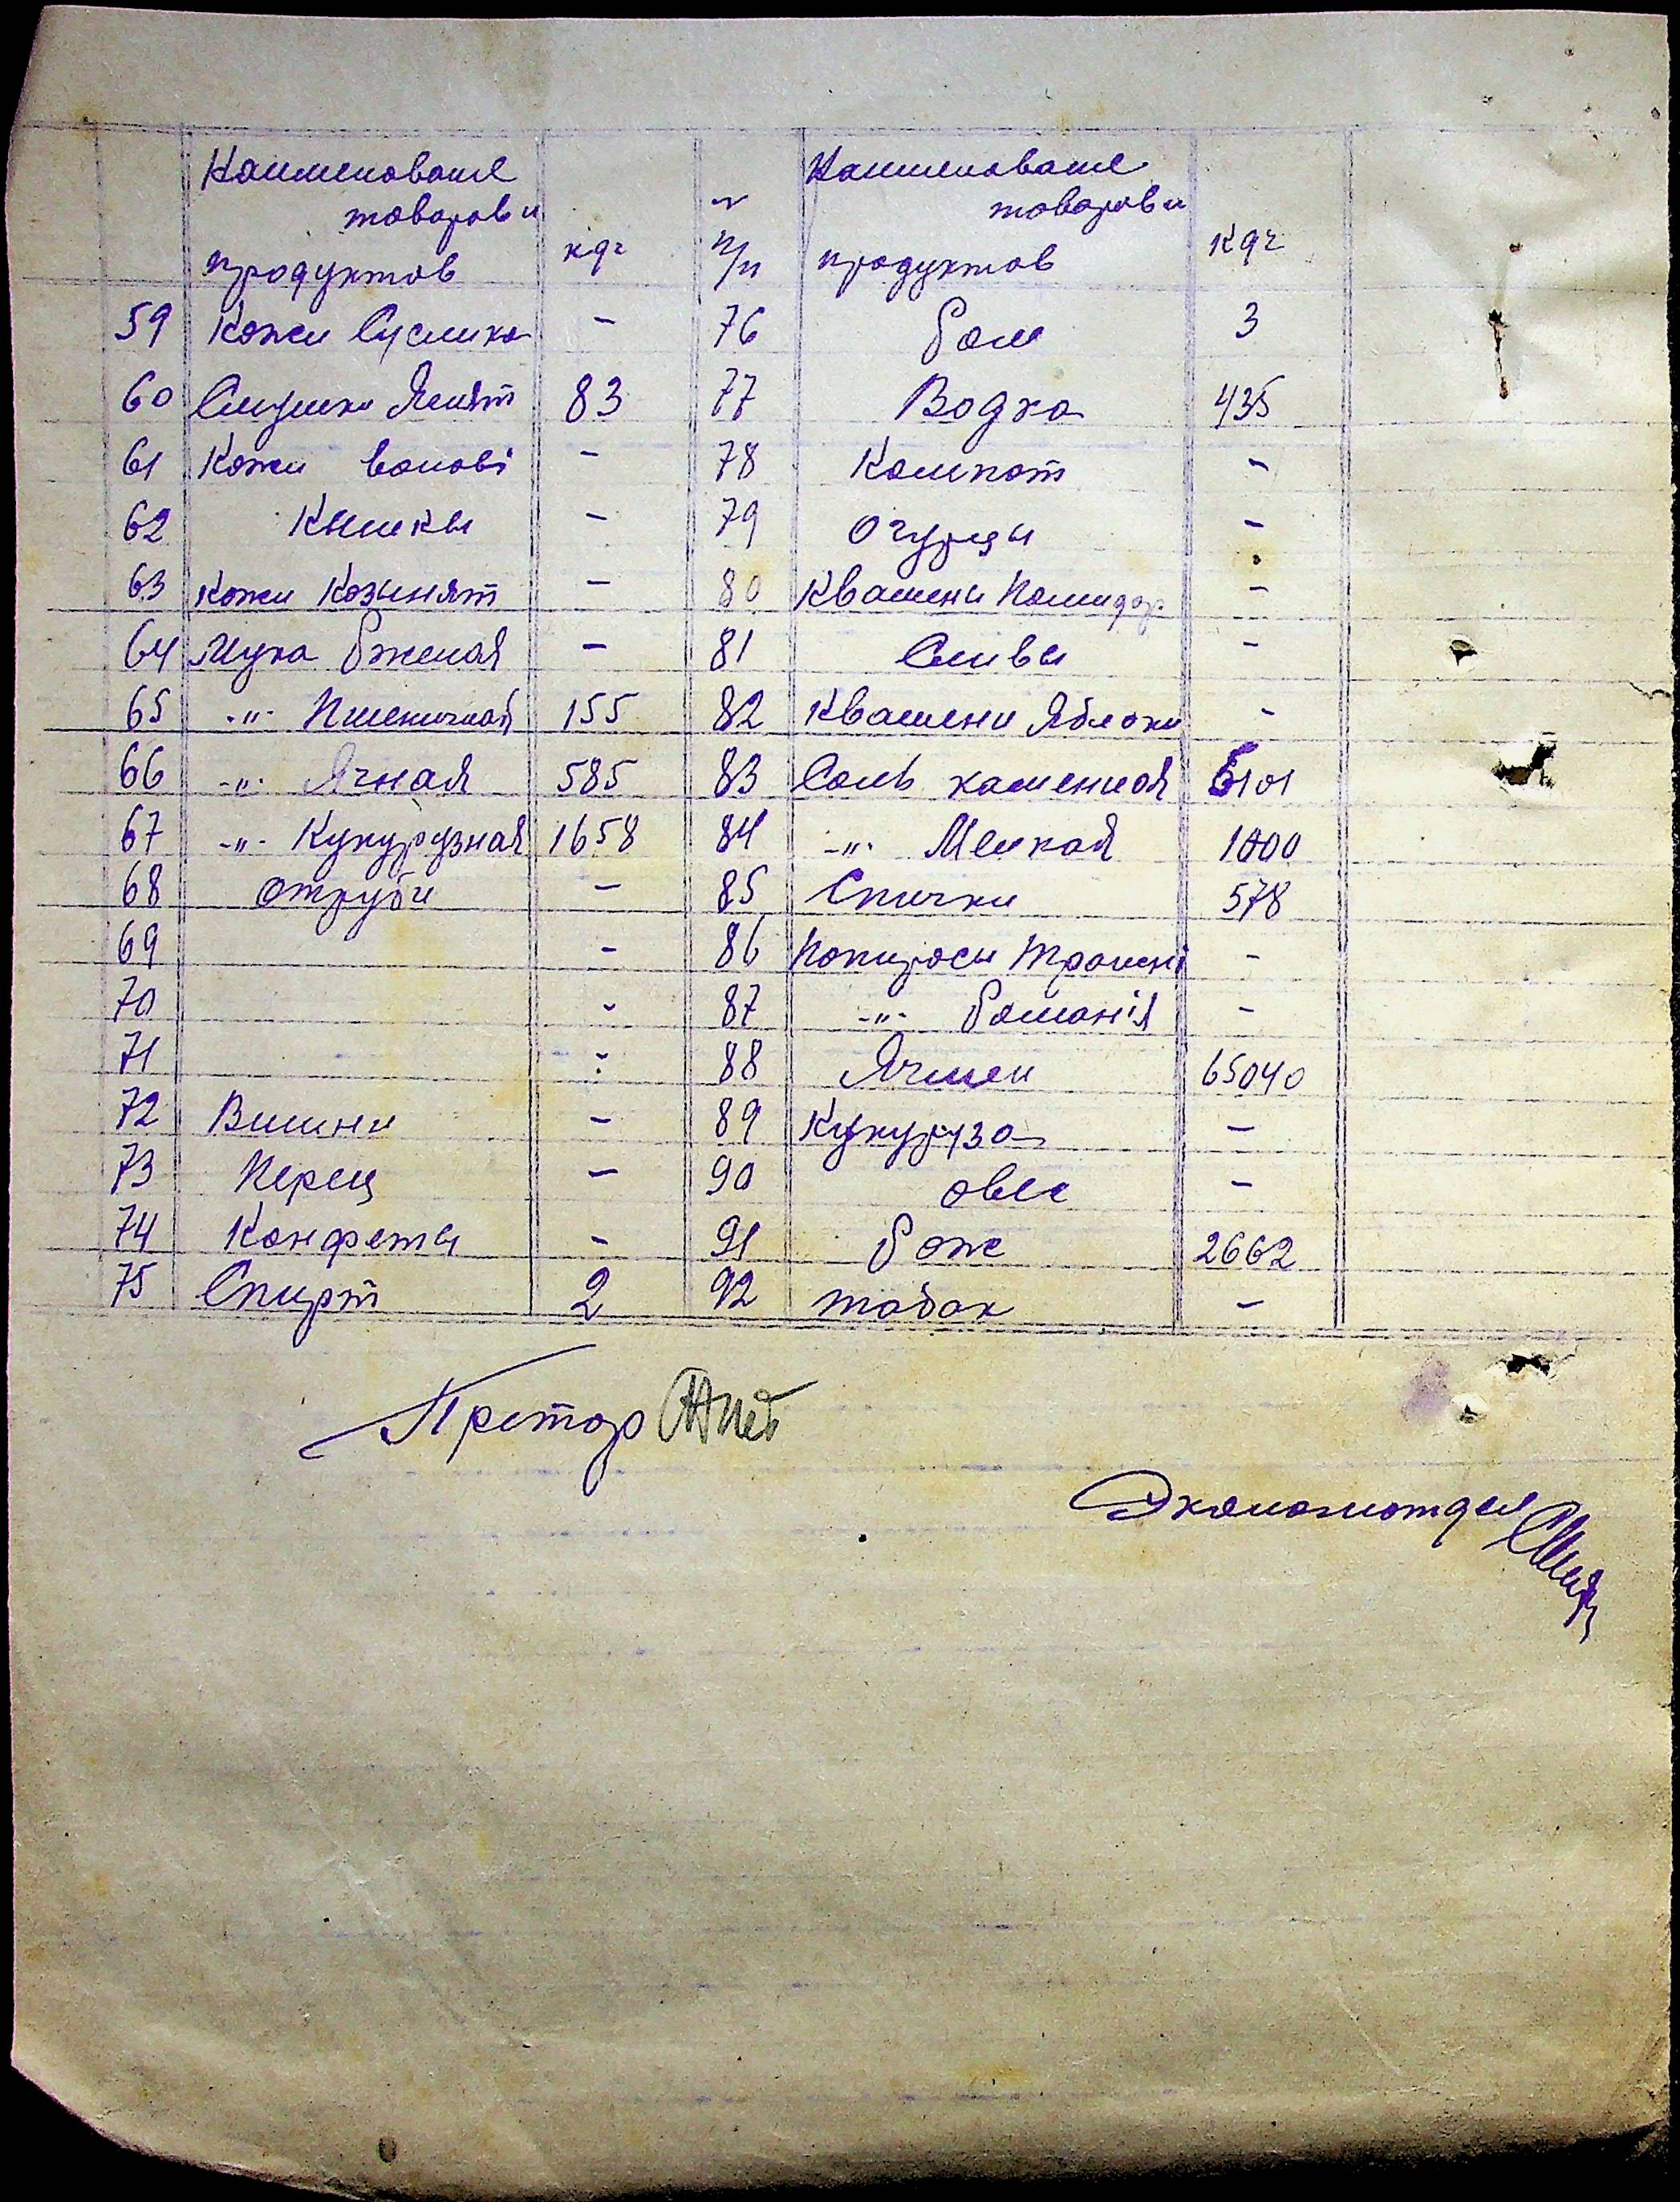 Наименование товаров и продуктов кдг № п/п Наименование товаров и продуктов кдг
59 Кожи Суслика - 76 Ром 3
60 Смушки Ягнят 83 77 Водка 435
61 Кожи волові - 78 Компот -
62 Кишкы - 79 Огурцы -
63 Кожи Козынят - 80 Квашени Помидор -
64 Мука Ржаная - 81 Сливы -
65 -"- Пшеничная 155 82 Квашени Яблоки -
66 -"- Ячная 585 83 Соль каменная 6101
67 -"- Кукурузная 1658 84 -"- Мелкая 1000
68 Отруби - 85 Спички 578
69 - 86 Попиросы -
70 - 87 -"- Романія -
71 - 88 Ячмен 65040
72 Вишни - 89 Кукуруза -
73 Перец - 90 овес -
74 Конфеты - 91 Рож 2662
75 Спирт 2 92 табак -
Претор
Экономотдел